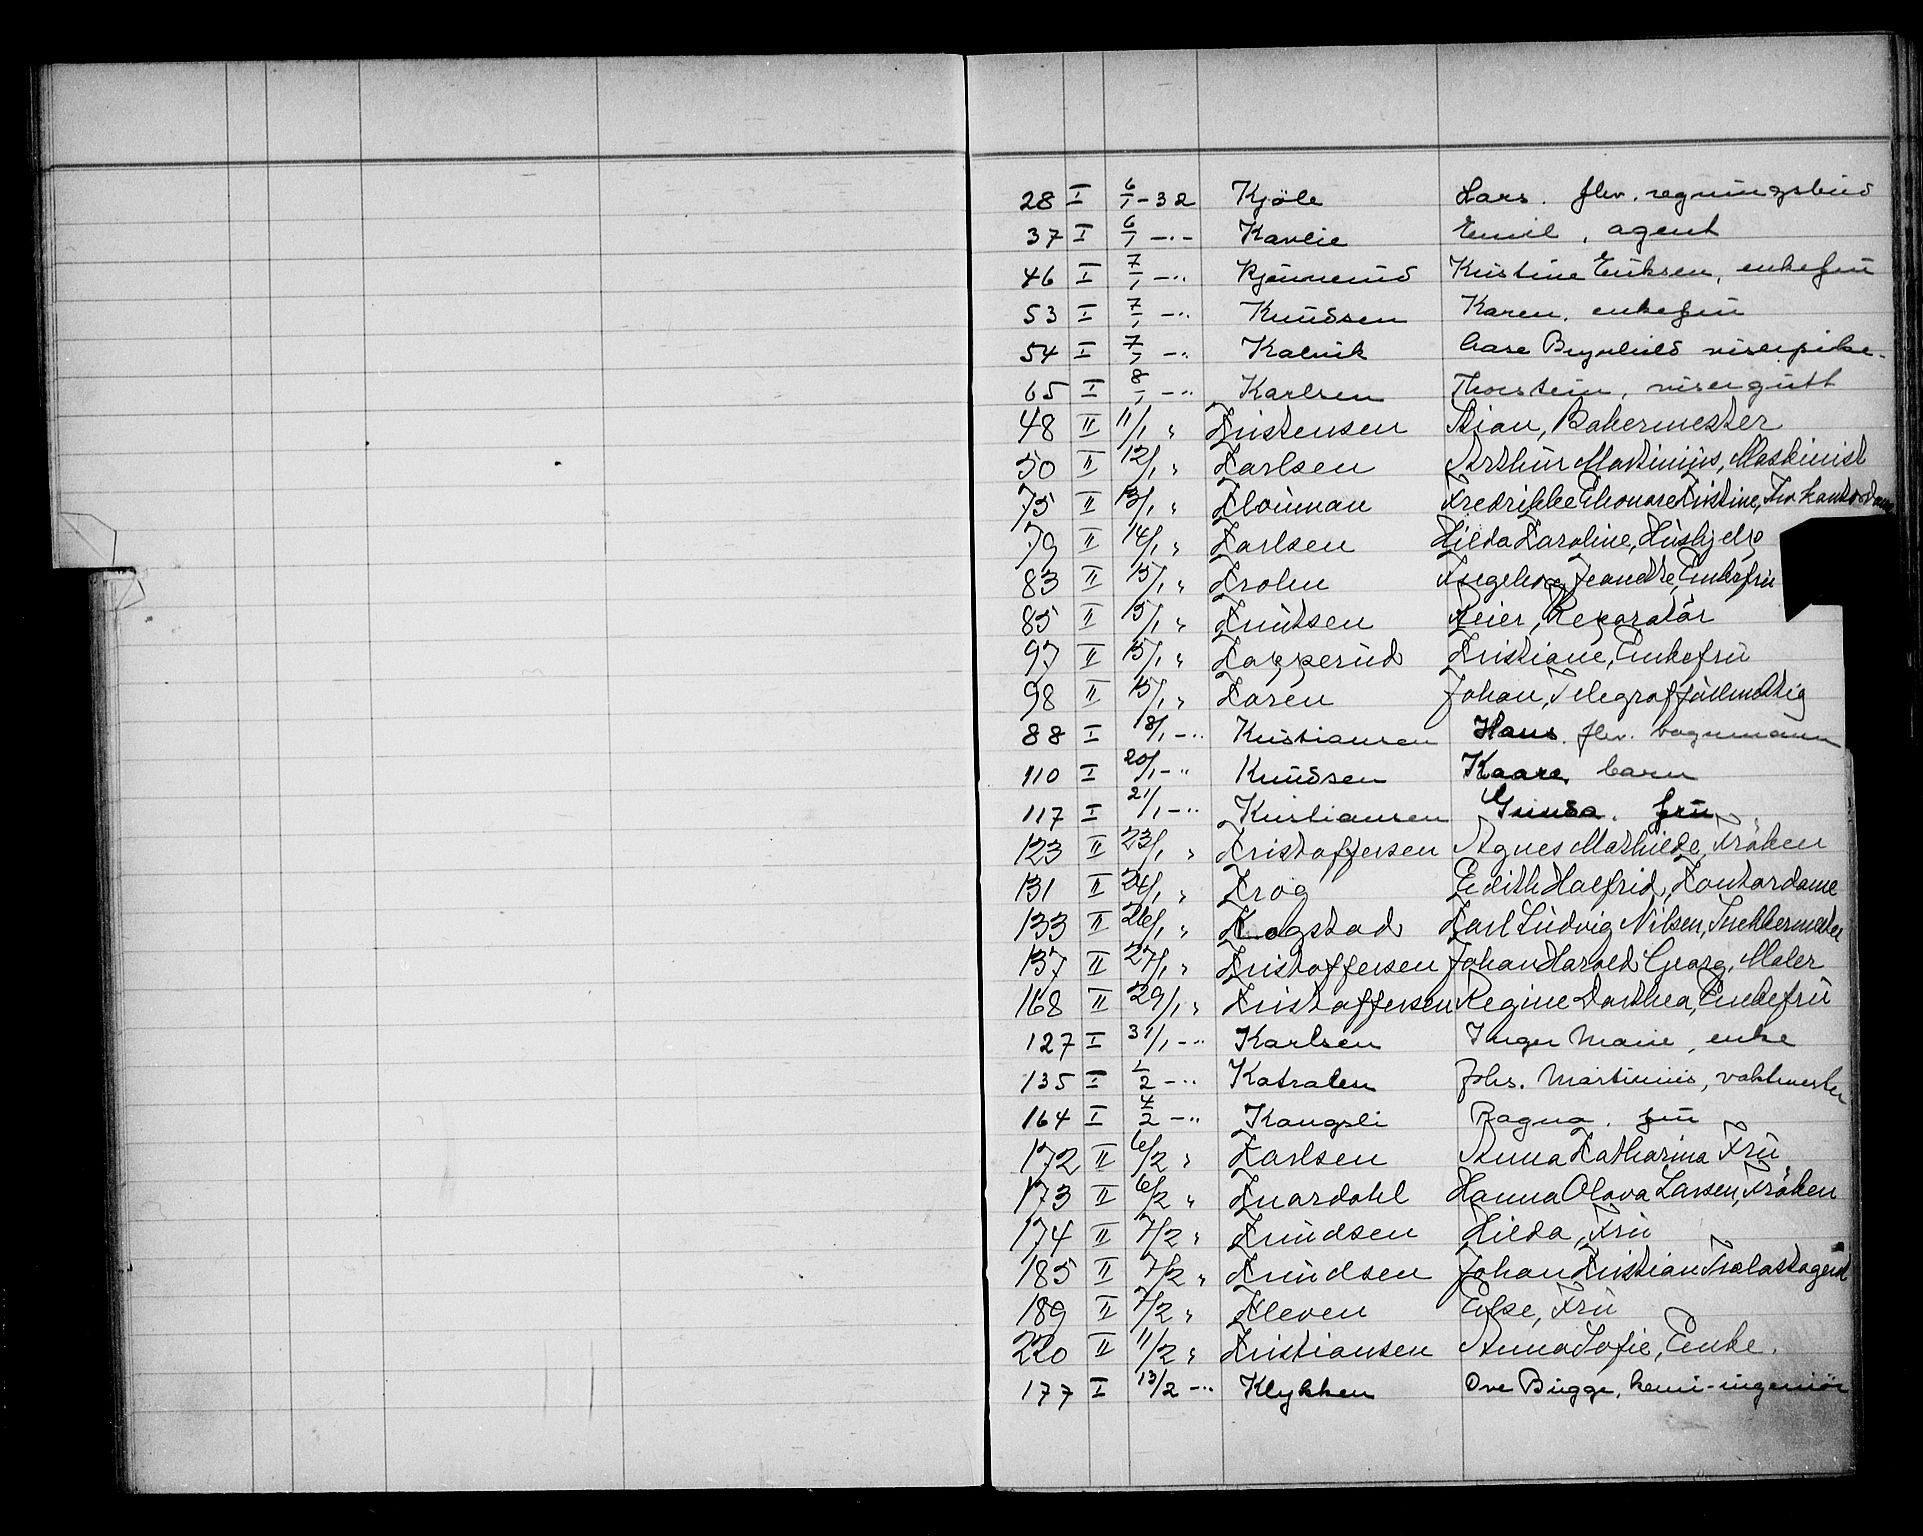 28 I 6/1 - 32 Kjöle Lars. flv. regningsbud
37 I 6/1 - " - Kavlie Emil, agent
46 I 7/1 - " Kjennerud Kristine Eriksen, enkefru
53 I 7/1 - " Knudsen Karen. enkefru
54 I 7/1 - " Kalvik Aase Brynhild viserpike.
65 I 8/1 - " Karlsen Thorstein, visergutt
48 II 11/1 " Kristensen Stian, Bakermester
50 II 12/1 " Karlsen Arthur Martinius, Maskinist
75 II 13/1 " Klouman Fredrikke Eleonore Kristine, Frk Kontordame
79 II 14/1 " Karlsen Hilda Karoline, Hushjelp
83 II 15/1 " Krohn Ingeborg Jeanette, Enkefru
85 II 15/1 " Knutsen Reier, Reparatör
97 II 15/1 " Kapperud Kristiane, Enkefru
98 II 15/1 " Karen Johan, Telegraffullmektig
88 I 18/1 - " Kristiansen Hans. flv. vognmann
110 I 20/1 - " Knudsen Kaare, barn
117 I 21/1 - " Kristiansen Gunda. fru
123 II 23/1 " Kristoffersen Agnes Mathilde, Fröken
131 II 24/1 " Krog Edith Halfrid, Kontordame
133 II 26/1 " Kogstad Karl Ludvig Nilsen, Snekkermester
137 II 27/1 " Kristoffersen Johan Harald Georg, Maler
168 II 29/1 " Kristoffersen Regine Dorthea, Enkefru
127 I 31/1 - " Karlsen Inger Marie, enke
135 I 1/2 - " Katralen Johs. Martinius, vaktmester
164 I 4/2 - " Kangsli Ragna. fru
172 II 6/2 " Karlsen Anna Katharina Fru
173 II 6/2 " Knardahl Hanna Olava Larsen, Fröken
174 II 7/2 " Knudsen Hilda, Fru
185 II 7/2 " Knudsen Johan Kristian Trælastagent
189 II 7/2 " Kleven Else, Fru
220 II 11/2 " Kristiansen Anna Sofie, Enke.
177 I 13/2 - " Klykken Ove Bugge, kemi-ingeniör